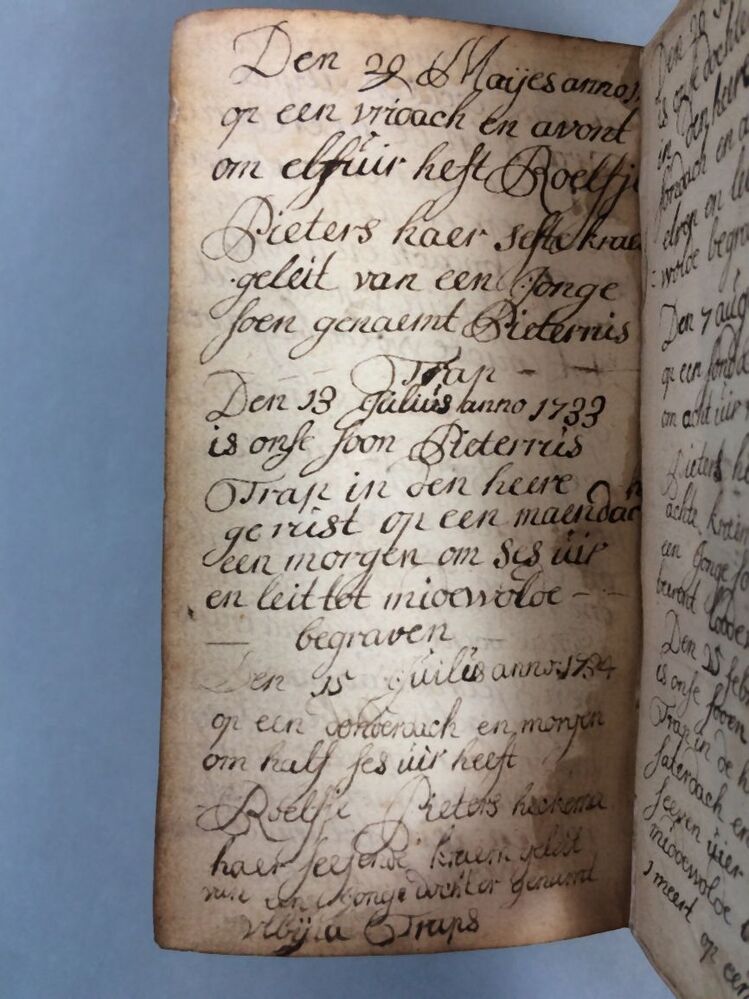 Den 29 Maijes anno
op een vridach en avont
om elf uir heft Roelfje
Pieters haer seste kraem
geleit van een Jonge
soen genaemt Pieternis
Trap
Den 13 Julius anno 1733
is onse soon Pieternis
Trap in den heere
gerust op een maendach
een morgen om ses uir
en leit tot midewolde
begraven
Den 15 Juilius anno 1734
op een donderdach en morgen
om half ses uir heeft
Roelfje Pieters heckema
haer seefende kraem geleit
van een Jonge dochter genaemt
Traps
Den 7 aug
op een
om acht uir
Pieters
achte kraem
een Jonge
Den 15 feb
is onse soon
Trap in de
saterdach en
seeven uier
midewolde
op een